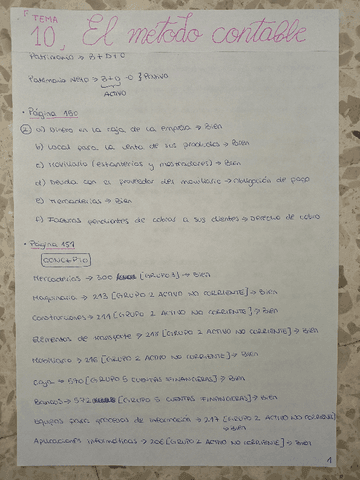 TEMA
10, El metodo contable
Patrimonio → B + D + O
Patrimonio Neto → B+D -O } PASIVO
ACTIVO
• Página 150
2 a) Dinero en la caja de la empresa → Bien
b) Local para la venta de sus productos → Bien
c) Mobiliario (estanterías y mostradores) → Bien
d) Deuda con el proveedor del mobiliario → Obligación de pago
e) Mercaderías → Bien
f) Facturas pendientes de cobrar a sus clientes → Derecho de cobro
• Página 157
CONCEPTO
Mercaderías → 300 [GRUPO 3] → Bien
Maquinaria → 213 [GRUPO 2 ACTIVO NO CORRIENTE] → Bien
Construcciones → 211 [GRUPO 2 ACTIVO NO CORRIENTE] → Bien
Elementos de transporte → 218 [GRUPO 2 ACTIVO NO CORRIENTE] → Bien
Mobiliario → 216 [GRUPO 2 ACTIVO NO CORRIENTE] → Bien
Caja → 570 [GRUPO 5 CUENTAS FINANCIERAS] → Bien
Bancos → 572 [GRUPO 5 CUENTAS FINANCIERAS] → Bien
Equipos para procesos de información → 217 [GRUPO 2 ACTIVO NO CORRIENTE]
→ Bien
Aplicaciones informáticas → 206 [GRUPO 2 ACTIVO NO CORRIENTE] → Bien
1